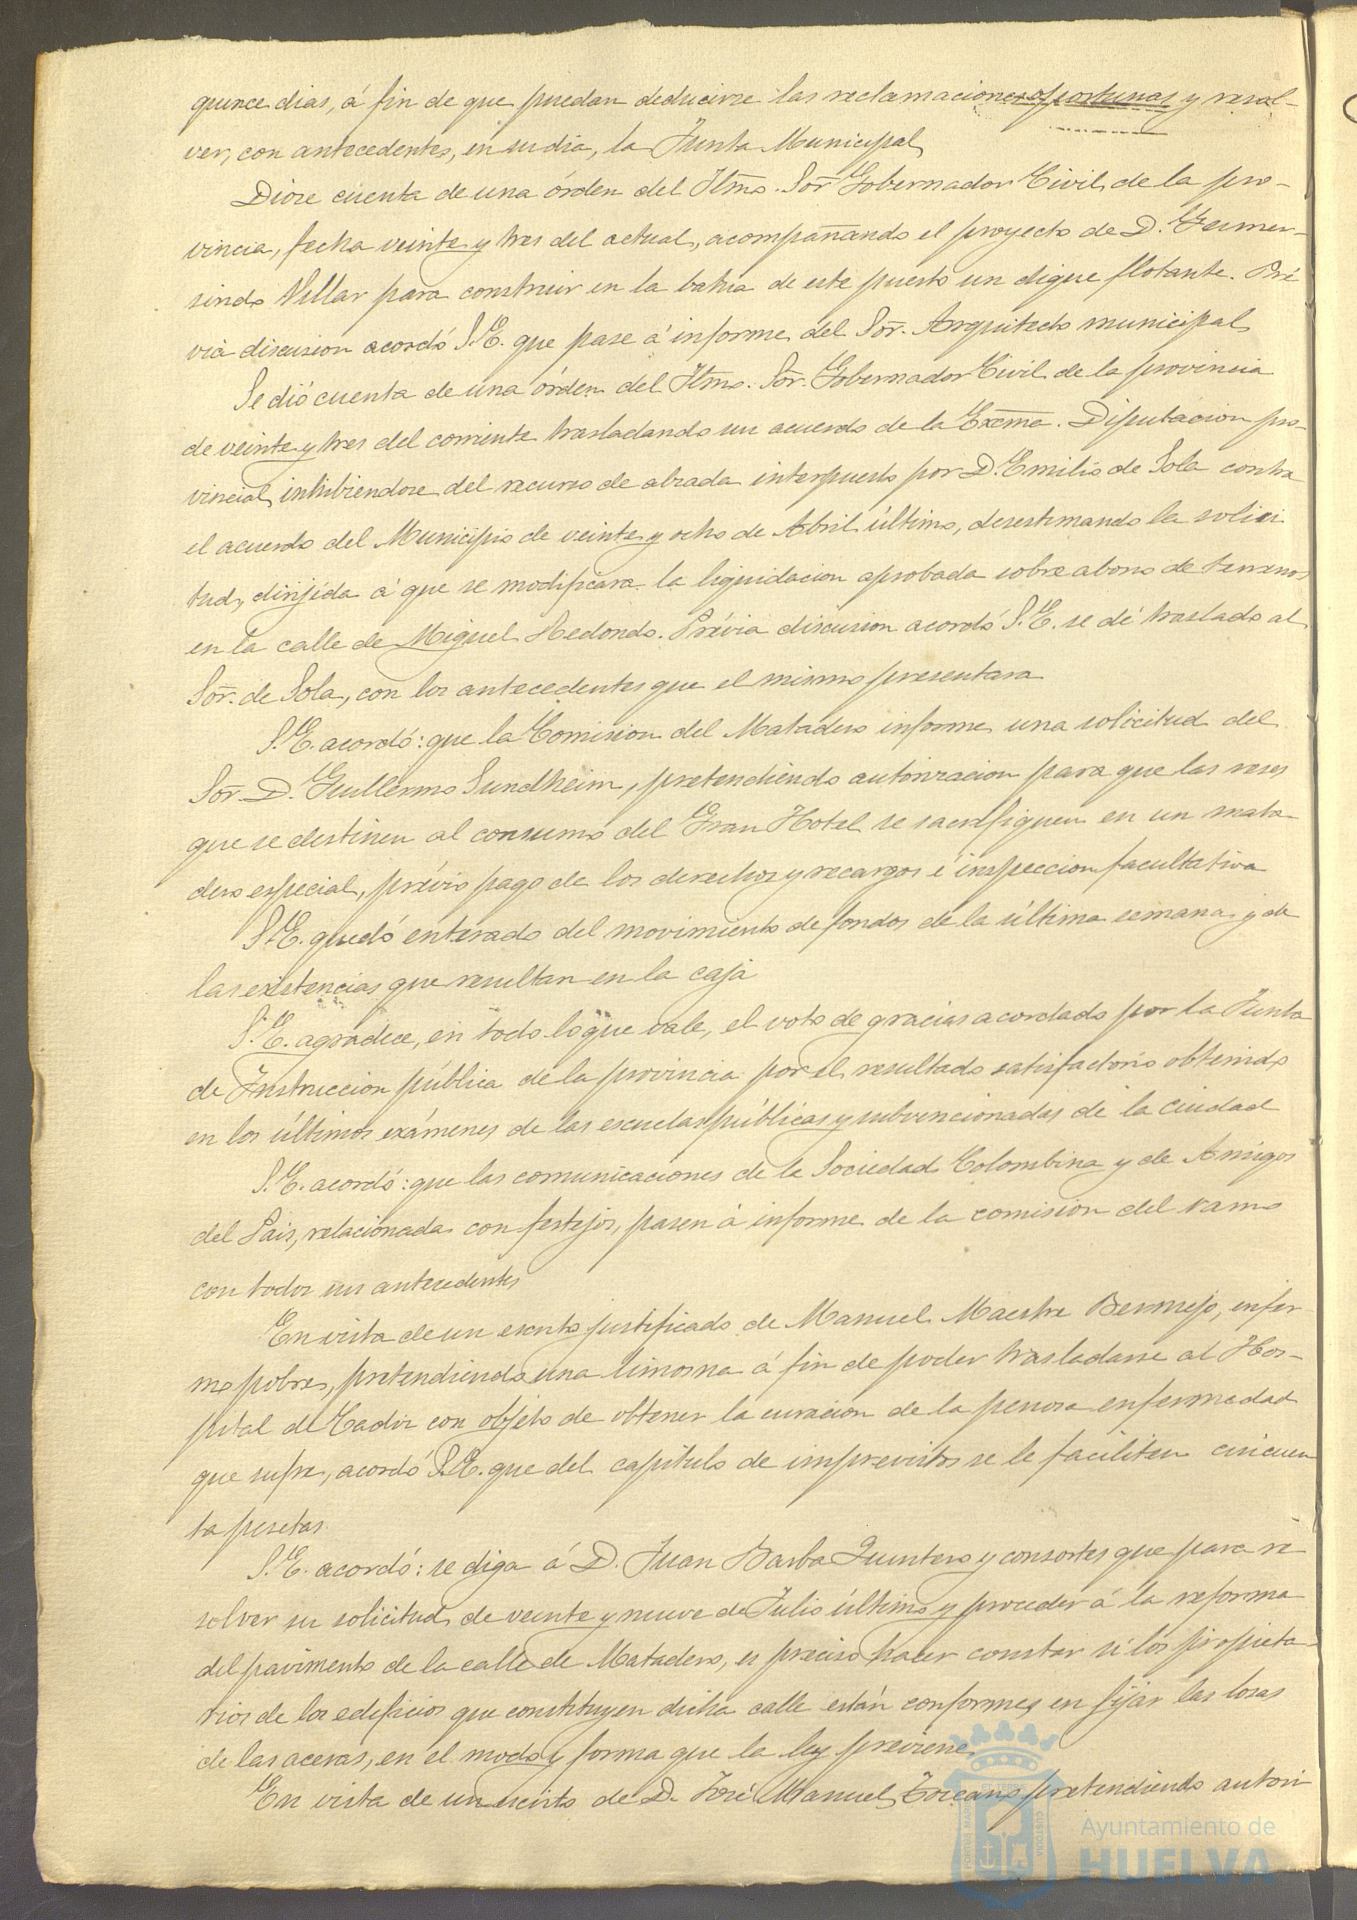 quince dias, á fin de que puedan deducirse las reclamaciones oportunas y resol-
ver, con antecedentes, en su dia, la Junta Municipal
Diose cuenta de una órden del Iltmo. Sor Gobernador Civil de la pro-
vincia, fecha veinte y tres del actual, acompañando el proyecto de D. Gumer-
sindo Villar para construir en la bahia de este puerto un dique flotante. Pré
via discusion acordó S.E. que pase á informe del Sor. Arquitecto municipal
Se dió cuenta de una órden del Iltmo. Sor. Gobernador Civil de la provincia
de veinte y tres del corriente trasladando un acuerdo de la Excma. Diputacion pro-
vincial inhibiendose del recurso de alzada interpuesto por D. Emilio de Sola contra
el acuerdo del Municipio de veinte y ocho de Abril último, desestimando la solici
tud, dirijida á que se modificara la liquidacion aprobada sobre abono de terrenos
en la calle de Miguel Redondo. Prévia discusion acordó S.E. se dé traslado al
Sor. de Sola, con los antecedentes que el mismo presentara
S.E. acordó: que la Comision del Matadero informe una solicitud del
Sor. D. Guillermo Sundheim, pretendiendo autorizacion para que las reses
que se destinen al consumo del Gran Hotel se sacrifiquen en un mata-
dero especial, prévio pago de los derechos y recargos é inspeccion facultativa
S.E. quedó enterado del movimiento de fondos de la última semana y de
las existencias que resultan en la caja
S.E. agradece, en todo lo que vale, el voto de gracias acordado por la Junta
de Instruccion pública de la provincia por el resultado satisfactorio obtenido
en los últimos exámenes de las escuelas públicas y subvencionadas de la ciudad
S.E. acordó: que las comunicaciones de la Sociedad Colombina y de Amigos
del Pais, relacionada con festejos, pasen á informe de la comision del ramo
con todos sus antecedentes
En vista de un escrito justificado de Manuel Maestre Bermejo, enfer-
mo pobre, pretendiendo una limosna á fin de poder trasladarse al Hos-
pital de Cadiz con objeto de obtener la curacion de la penosa enfermedad
que sufre, acordó S.E. que del capítulo de imprevistos se le faciliten cincuen
ta pesetas.
S.E. acordó: se diga á D. Juan Barba Quintero y consortes que para re-
solver su solicitud de veinte y nueve de Julio último y proceder á la reforma
del pavimento de la calle de Matadero, es preciso hacer constar si los propieta-
rios de los edificios que constituyen dicha calle están conformes en fijar las losas
de las aceras, en el modo y forma que la ley previene
En vista de un escrito de D. José Manuel Toscano pretendiendo autori
Ayuntamiento de
HUELVA